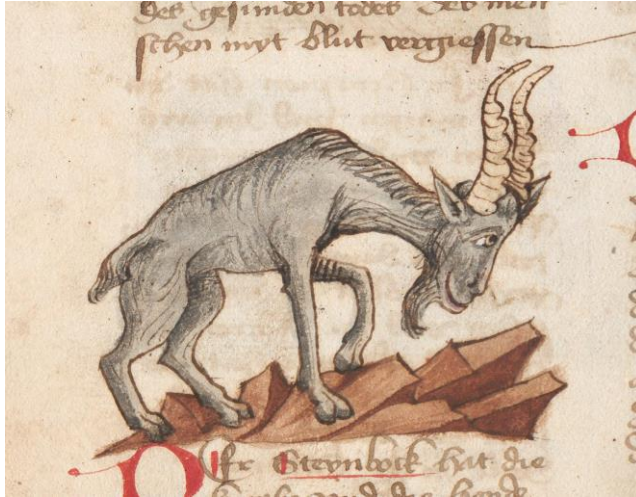 des gesunden todes Des men
schen myt blut vergiessen
Der Steynbock hat die